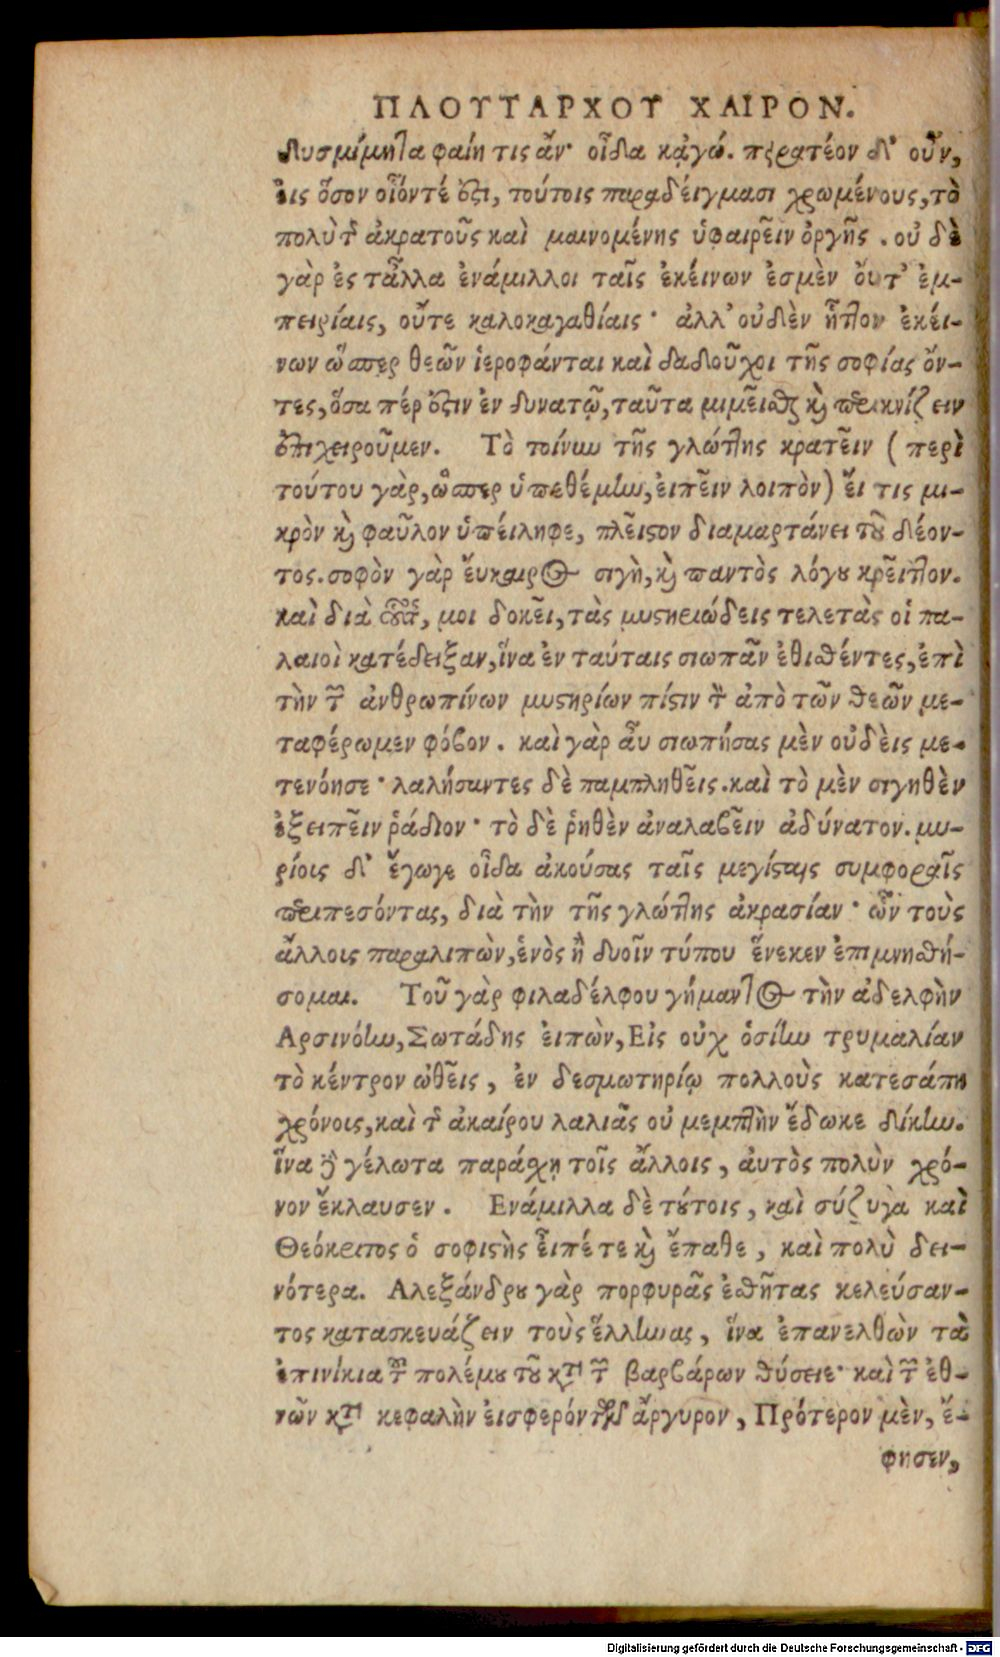 ΠΛΟΥΤΑΡΧΟΥ ΧΑΙΡΟΝ.
δυσμίμητα φαίη τις ἄν· οἶδα κἀγώ. πειρατέον δ' οὖν,
εἰς ὅσον οἷόντέ ἐστι, τούτοις παραδείγμασι χρωμένους, τὸ
πολὺ τῆς ἀκρατοῦς καὶ μαινομένης ὑφαιρεῖν ὀργῆς. οὐ δὲ
γὰρ ἐς τἄλλα ἐνάμιλλοι ταῖς ἐκείνων ἐσμὲν οὔτ' ἐμ-
πειρίαις, οὔτε καλοκαγαθίαις· ἀλλ' οὐδὲν ἧττον ἐκεί-
νων ὥσπερ θεῶν ἱεροφάνται καὶ δαδοῦχοι τῆς σοφίας ὄν-
τες, ὅσα πέρ ἐστιν ἐν δυνατῷ, ταῦτα μιμεῖσθαι καὶ περικνίζειν
ἐπιχειροῦμεν. Τὸ τοίνυν τῆς γλώττης κρατεῖν (περὶ
τούτου γὰρ, ὥσπερ ὑπεθέμην, εἰπεῖν λοιπὸν) εἴ τις μι-
κρὸν καὶ φαῦλον ὑπείληφε, πλεῖστον διαμαρτάνει τοῦ δέον-
τος. σοφὸν γὰρ εὔκαιρος σιγὴ, καὶ παντὸς λόγου κρεῖττον.
καὶ διὰ τοῦτό, μοι δοκεῖ, τὰς μυστηριώδεις τελετὰς οἱ πα-
λαιοὶ κατέδειξαν, ἵνα ἐν ταύταις σιωπᾶν ἐθισθέντες, ἐπὶ
τὴν τῶν ἀνθρωπίνων μυστηρίων πίστιν τὸν ἀπὸ τῶν θεῶν με-
ταφέρωμεν φόβον. καὶ γὰρ αὖ σιωπήσας μὲν οὐδεὶς με-
τενόησε· λαλήσαντες δὲ παμπληθεῖς. καὶ τὸ μὲν σιγηθὲν
ἐξειπεῖν ῥάδιον· τὸ δὲ ῥηθὲν ἀναλαβεῖν ἀδύνατον. μυ-
ρίοις δ' ἔγωγε οἶδα ἀκούσας ταῖς μεγίσταις συμφοραῖς
περιπεσόντας, διὰ τὴν τῆς γλώττης ἀκρασίαν· ὧν τοὺς
ἄλλοις παραλιπὼν, ἑνὸς ἢ δυοῖν τύπου ἕνεκεν ἐπιμνησθή-
σομαι. Τοῦ γὰρ φιλαδέλφου γήμαντος τὴν ἀδελφὴν
Αρσινόην, Σωτάδης εἰπὼν, Εἰς οὐχ ὁσίην τρυμαλίαν
τὸ κέντρον ὠθεῖς, ἐν δεσμωτηρίῳ πολλοὺς κατεσάπη
χρόνοις, καὶ τῆς ἀκαίρου λαλιᾶς οὐ μεμπτὴν ἔδωκε δίκην.
ἵνα δὲ γέλωτα παράσχῃ τοῖς ἄλλοις, αὐτὸς πολὺν χρό-
νον ἔκλαυσεν. Ενάμιλλα δὲ τούτοις, καὶ σύζυγα καὶ
Θεόκριτος ὁ σοφιστὴς εἶπέ τε καὶ ἔπαθε, καὶ πολὺ δει-
νότερα. Αλεξάνδρου γὰρ πορφυρᾶς ἐσθῆτας κελεύσαν-
τος κατασκευάζειν τοὺς ἕλληνας, ἵνα ἐπανελθὼν τὰ
ἐπινίκια τοῦ πολέμου τοῦ κατὰ τῶν βαρβάρων θύσειε· καὶ τῶν ἐθ-
νῶν κατὰ κεφαλὴν εἰσφερόντων ἄργυρον, Πρότερον μὲν, ἔ-
φησεν,
Digitalisierung gefördert durch die Deutsche Forschungsgemeinschaft - DFG